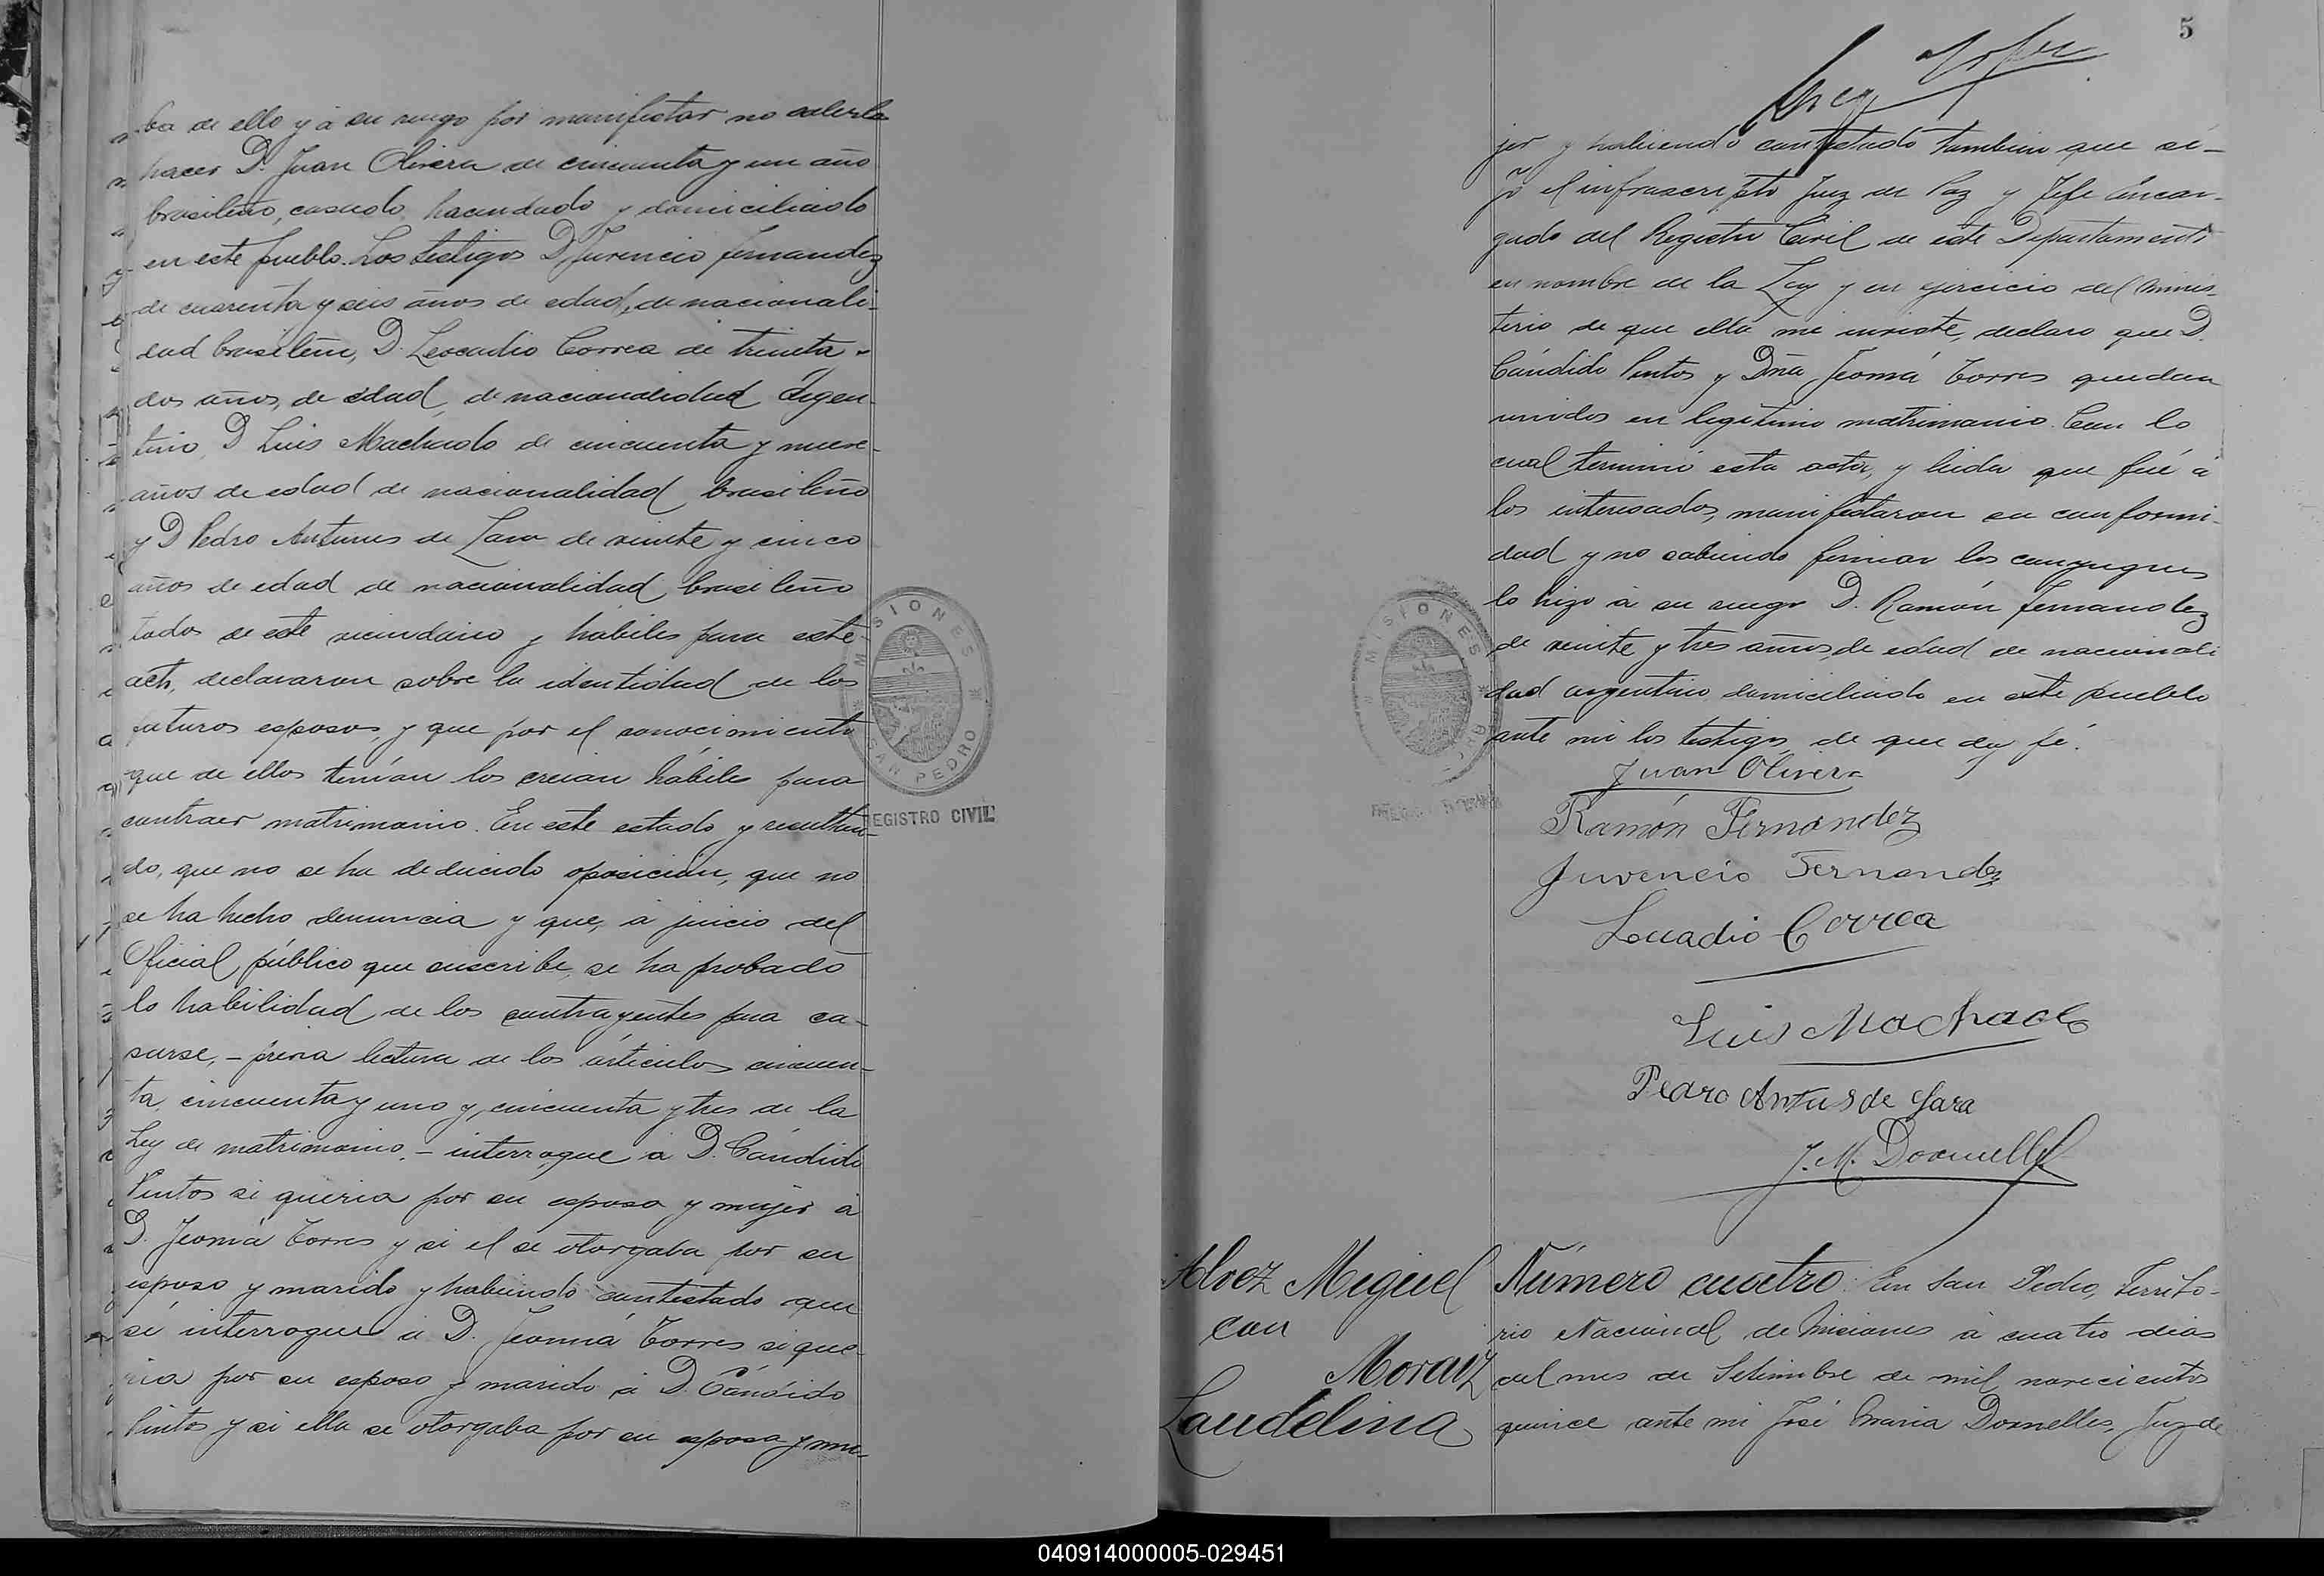 ba de ello y á su ruego por manifestar no saberlo
hacer D. Juan Olivera de cincuenta y un año
brasileño, casado, hacendado y domiciliado
en este pueblo. Los testigos D. Juvencio Fernandez
de cuarenta y seis años de edad, de nacionali-
dad brasileña, D. Leocadio Correa de treinta y
dos años, de edad, de nacionalidad Argen-
tino, D. Luis Machado de cincuenta y nueve
años de edad de nacionalidad brasileño
y D Pedro Antunes de Lara de veinte y cinco
años de edad de nacionalidad brasileño
todos de este vecindario y hábiles para este
acto, declararon sobre la identidad de los
futuros esposos y que por el conocimiento
que de ellos tenían los creian hábiles para
contraer matrimonio. En este estado y resultan-
do, que no se ha deducido oposicion, que no
se ha hecho denuncia y que, á juicio del
Oficial público que suscribe, se ha probado
la habilidad de los contrayentes para ca-
sarse, - previa lectura de los artículos cincuen-
ta, cincuenta y uno y cincuenta y tres de la
Ley de matrimonio, - interrogue a D. Cándido
Pintos si queria por su esposa y mujer á
D. Jeomá Torres y si el se otorgaba por su
esposo y marido y habiendo contestado que
sí interrogue á D. Jeomá Torres si que-
ria por su esposo y marido á D. Cándido
Pintos y si ella se otorgaba por su esposa y mu-
MISIONES
SAN PEDRO
REGISTRO CIVIL
5
jer y habiendo contestado tambien que sí-
jó el infrascripto Juez de Paz y Jefe Encar-
gado del Registro Civil de este Departamento
en nombre de la Ley y en ejercicio del Minis-
terio de que ella me inviste, declaro que D.
Cándido Pintos y Dña Jeomá Torres quedan
unidos en legitimo matrimonio. Con lo
cual terminó esta acta, y leida que fué á
los interesados, manifestaron su conformi-
dad y no sabiendo firmar los conyugues
lo hizo á su ruego D. Ramón Fernandez
de veinte y tres años de edad de nacionali
dad argentino domiciliado en este pueblo
ante mi los testigos de que doy fé.
MISIONES
Juan Olivera
Ramón Fernandez
Juvencio Fernandez
Locuadio Correa
Luis Machado
Pedro Antus de Lara
J. M. Dornelles
Alvez Miguel
con
Moraiz
Laudelina
Número cuatro. En San Pedro, Territo-
rio Nacional de Misiones á cuatro dias
del mes de Setiembre de mil novecientos
quince ante mi José Maria Dornelles, Juez de
040914000005-029451